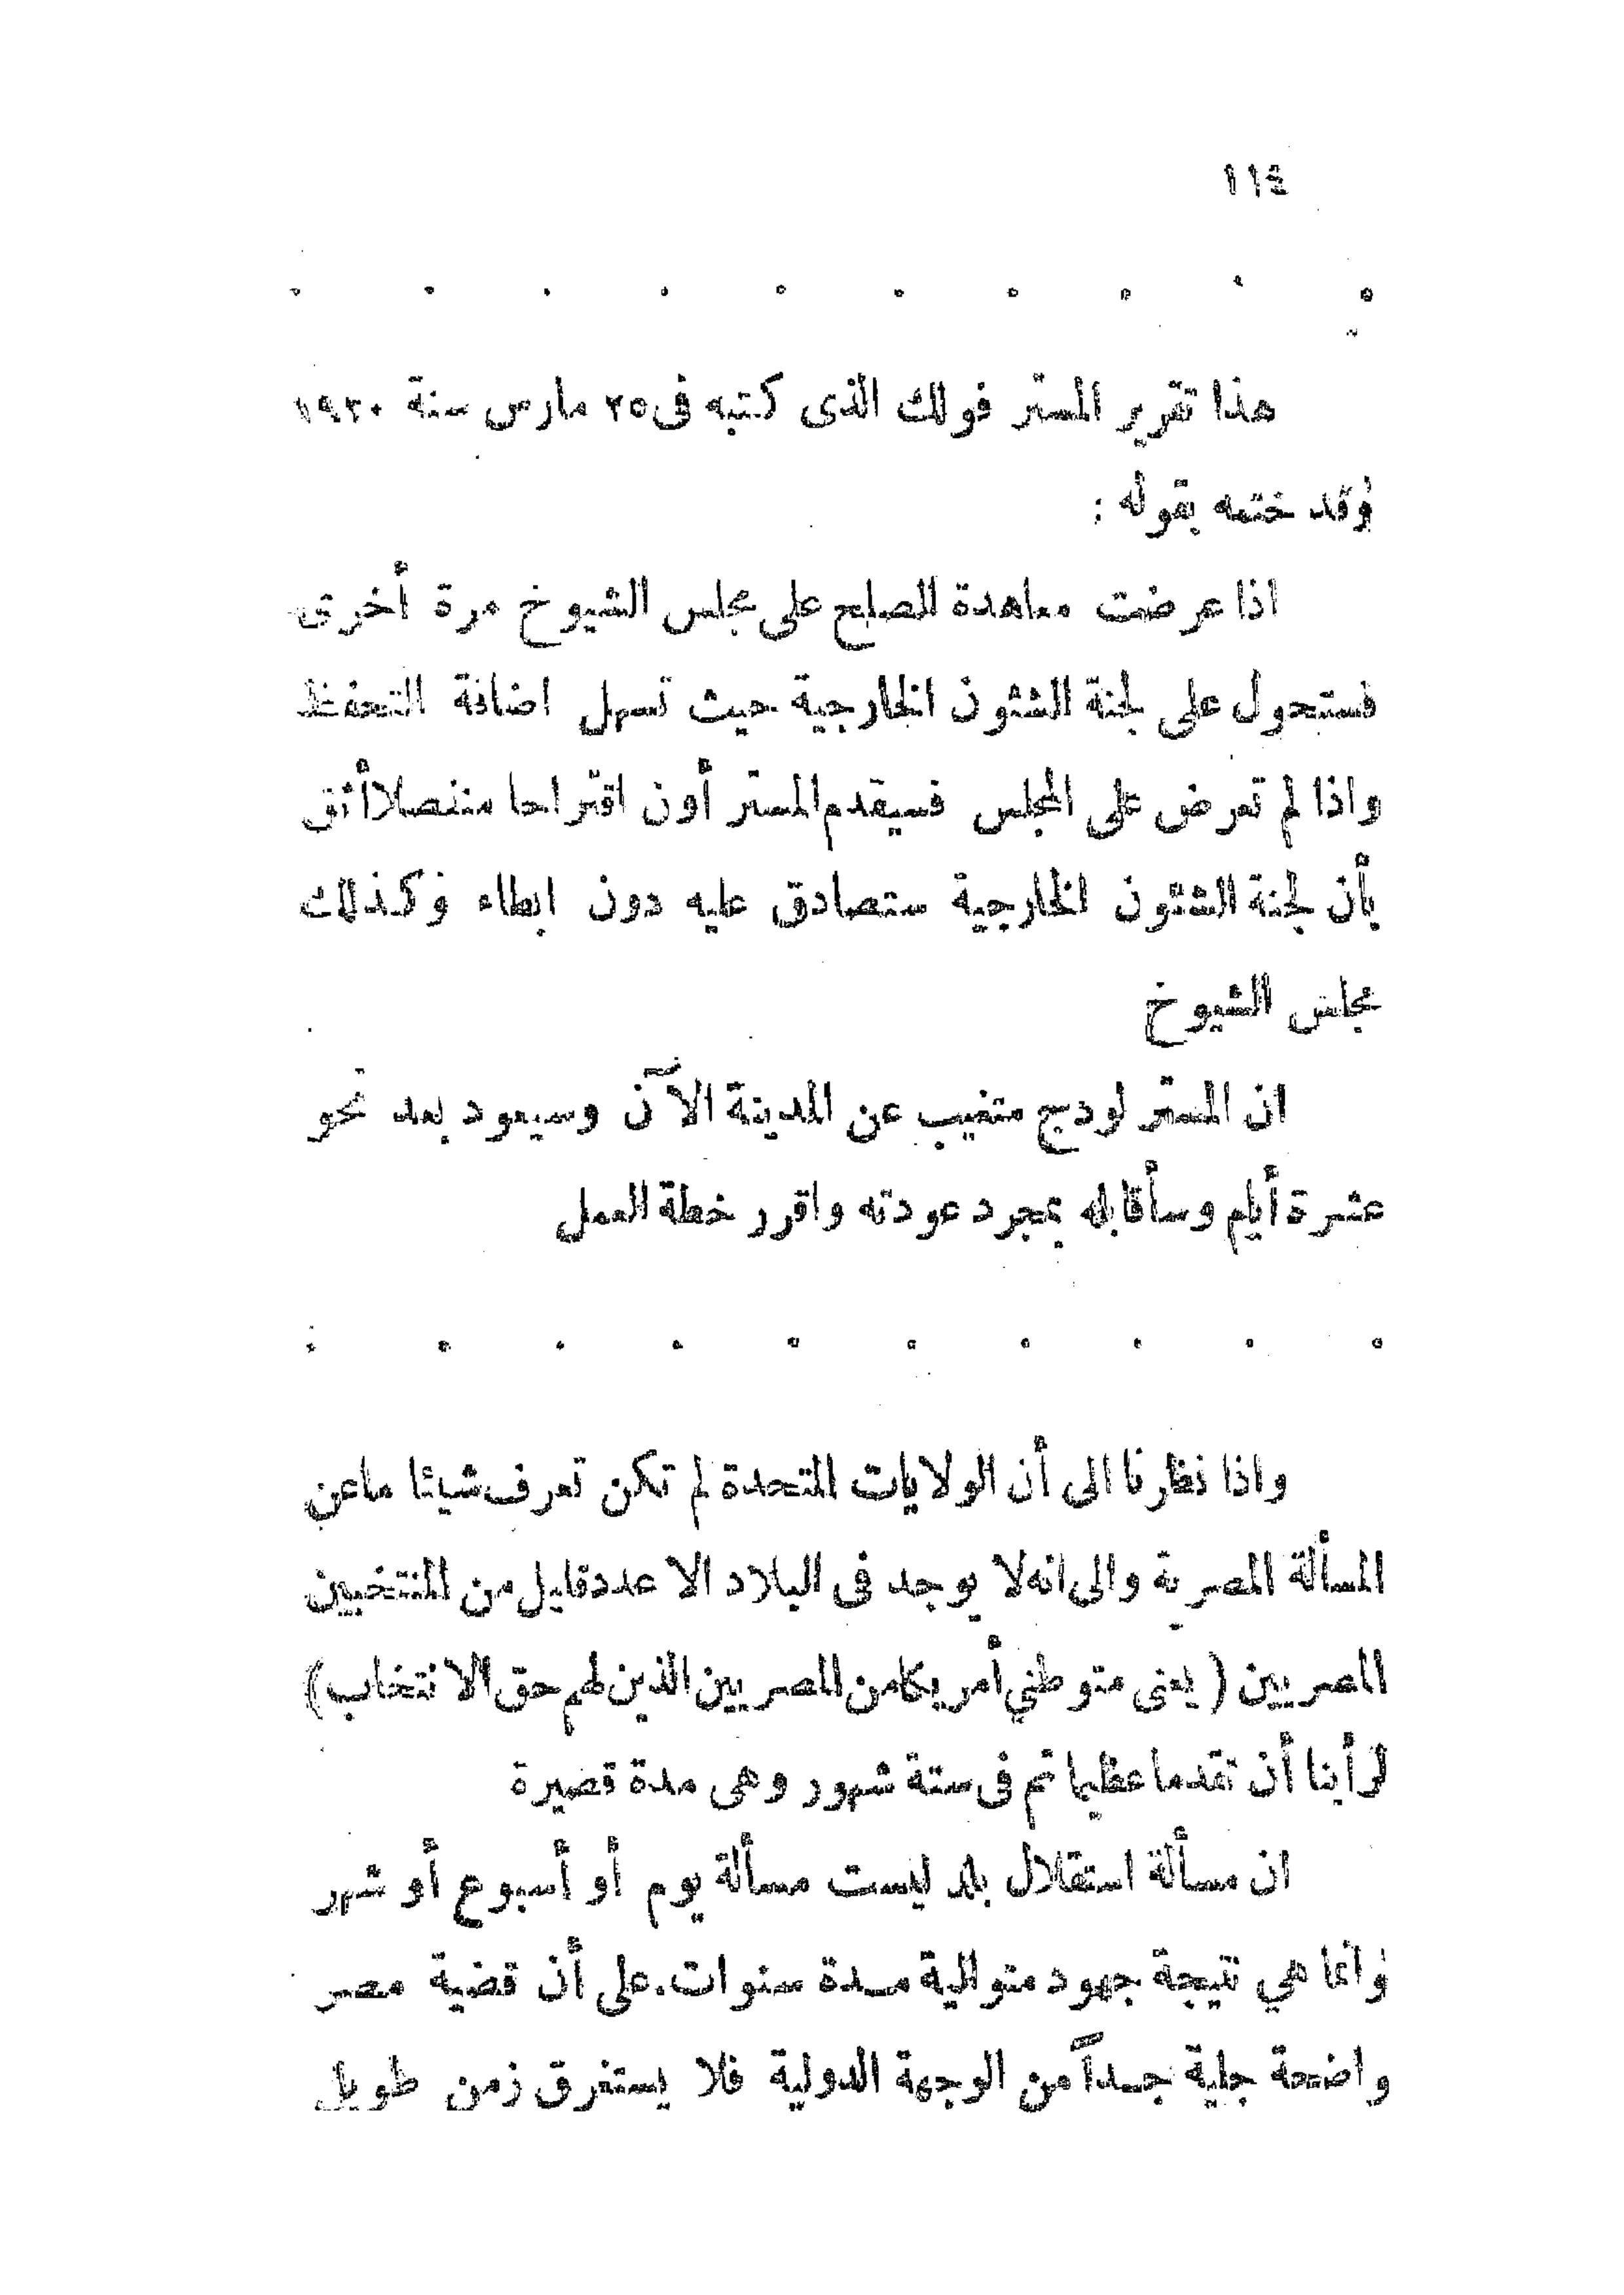 ١١٤
. . . . . . . . . .
هذا تقرير المستر فولك الذى كتبه فى ٢٥ مارس سنة ١٩٢٠
وقد ختمه بقوله :
اذا عرضت معاهدة الصلح على مجلس الشيوخ مرة أخرى
فستحول على لجنة الشئون الخارجية حيث تسهل اضافة التحفظ
واذا لم تعرض على المجلس فسيقدم المستر أون اقتراحا منفصلا أثق
بأن لجنة الشئون الخارجية ستصادق عليه دون ابطاء وكذلك
مجلس الشيوخ
ان المستر لودج متغيب عن المدينة الآن وسيعود بعد نحو
عشرة أيام وسأقابله بمجرد عودته واقرر خطة العمل
. . . . . . . . . .
واذا نظرنا الى أن الولايات المتحدة لم تكن تعرف شيئا ما عن
المسألة المصرية والى انه لا يوجد فى البلاد الا عدد قليل من المنتخبين
المصريين ( يعنى متوطني أمريكا من المصريين الذين لهم حق الانتخاب )
لرأينا أن تقدما عظيما تم فى ستة شهور وهى مدة قصيرة
ان مسألة استقلال بلد ليست مسألة يوم أو أسبوع أو شهر
وانما هي نتيجة جهود متوالية مدة سنوات. على أن قضية مصر
واضحة جلية جداً من الوجهة الدولية فلا يستغرق زمن طويل